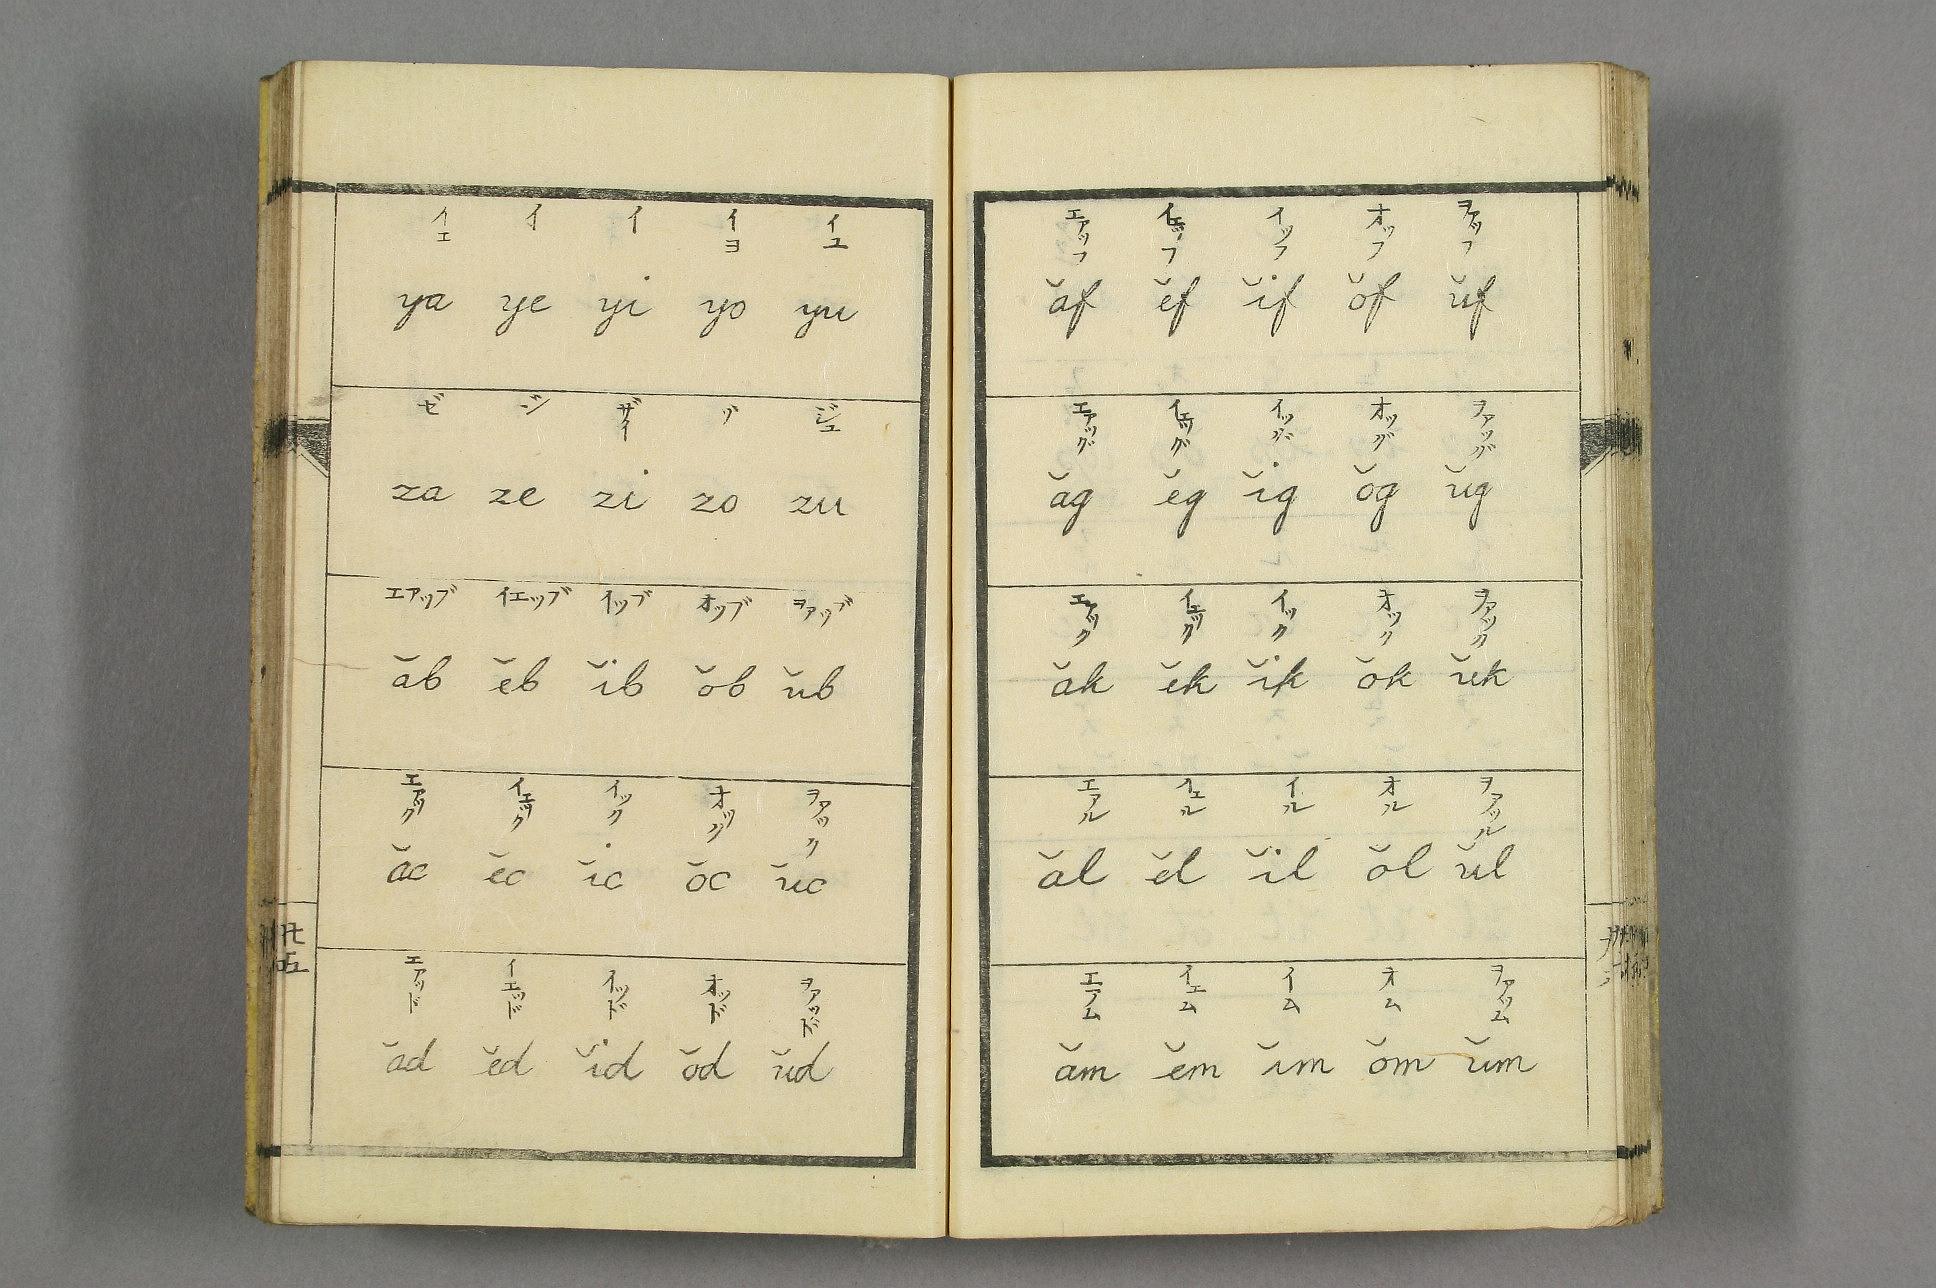 イエ イ イ イヨ イユ
ya ye yi yo yu
ゼ ジ ザイ ヅ ジュ
za ze zi zo zu
エアッブ イエッブ イッブ オッブ ヲアッブ
ăb ĕb ĭb ŏb ŭb
エアック イエック イック オック ヲアック
ăc ĕc ĭc ŏc ŭc
エアッド イエッド イッド オッド ヲアッド
ăd ĕd ĭd ŏd ŭd
エアッフ イエッフ イッフ オッフ ヲアッフ
ăf ĕf ĭf ŏf ŭf
エアッグ イエッグ イッグ オッグ ヲアッグ
ăg ĕg ĭg ŏg ŭg
エアック イエック イック オック ヲアック
ăk ĕk ĭk ŏk ŭk
エアル イエル イル オル ヲアッル
ăl ĕl ĭl ŏl ŭl
エアム イエム イム オム ヲアッム
ăm ĕm ĭm ŏm ŭm